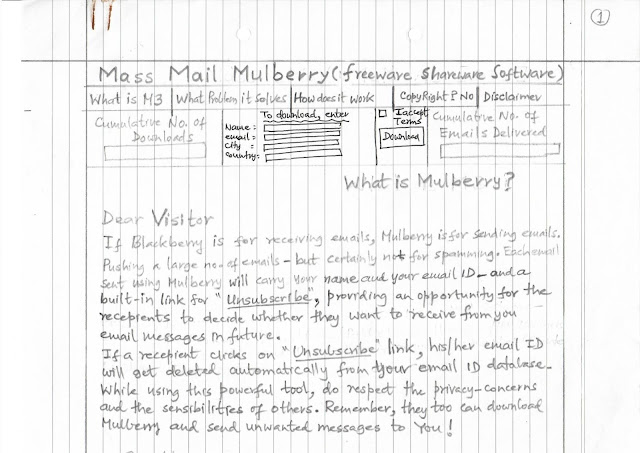 1
Mass Mail Mulberry (freeware shareware software)
What is M3 What Problem it solves How does it work CopyRight? No Disclaimer
Cumulative No. of Downloads
To download, enter
Name:
email:
city:
country:
I accept Terms
Download
Cumulative No. of Emails Delivered
What is Mulberry?
Dear Visitor
If Blackberry is for receiving emails, Mulberry is for sending emails.
Pushing a large no. of emails - but certainly not for spamming. Each email
sent using Mulberry will carry your name and your email ID - and a
built-in link for "Unsubscribe", providing an opportunity for the
recepients to decide whether they want to receive from you
email messages in future.
If a recepient clicks on "Unsubscribe" link, his/her email ID
will get deleted automatically from your email ID database.
While using this powerful tool, do respect the privacy-concerns
and the sensibilities of others. Remember, they too can download
Mulberry and send unwanted messages to You!